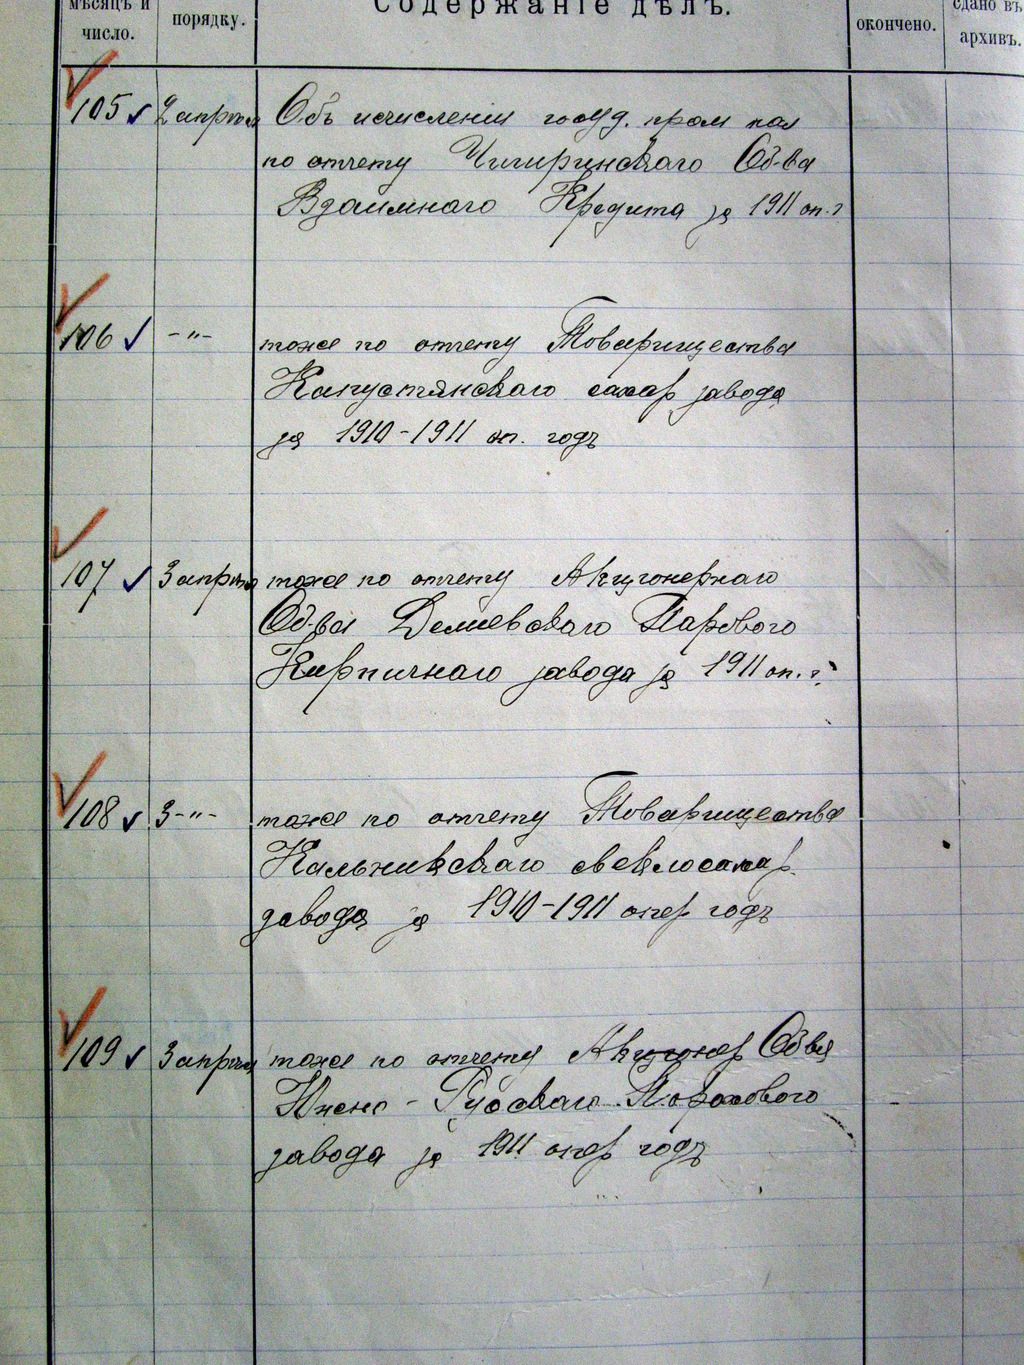 мѣсяцъ и
число.
порядку.
Содержаніе дѣлъ.
окончено.
сдано въ
архивъ.
105 2 апрѣля Объ исчисленіи госуд. пром нал
по отчету Чигиринскаго Об-ва
Взаимнаго Кредита за 1911 оп. г
106 -"- тоже по отчету Товарищества
Капустянскаго сахар завода
за 1910-1911 оп. годъ
107 3 апрѣля тоже по отчету Акціонернаго
Об-ва Деміевскаго Парового
Кирпичнаго завода за 1911 оп. г.
108 3 -"- тоже по отчету Товарищества
Кальникскаго свеклосахар.
завода за 1910-1911 опер годъ
109 3 апрѣля тоже по отчету Акціонер Общва
Южно-Русскаго Порохового
завода за 1911 опер годъ